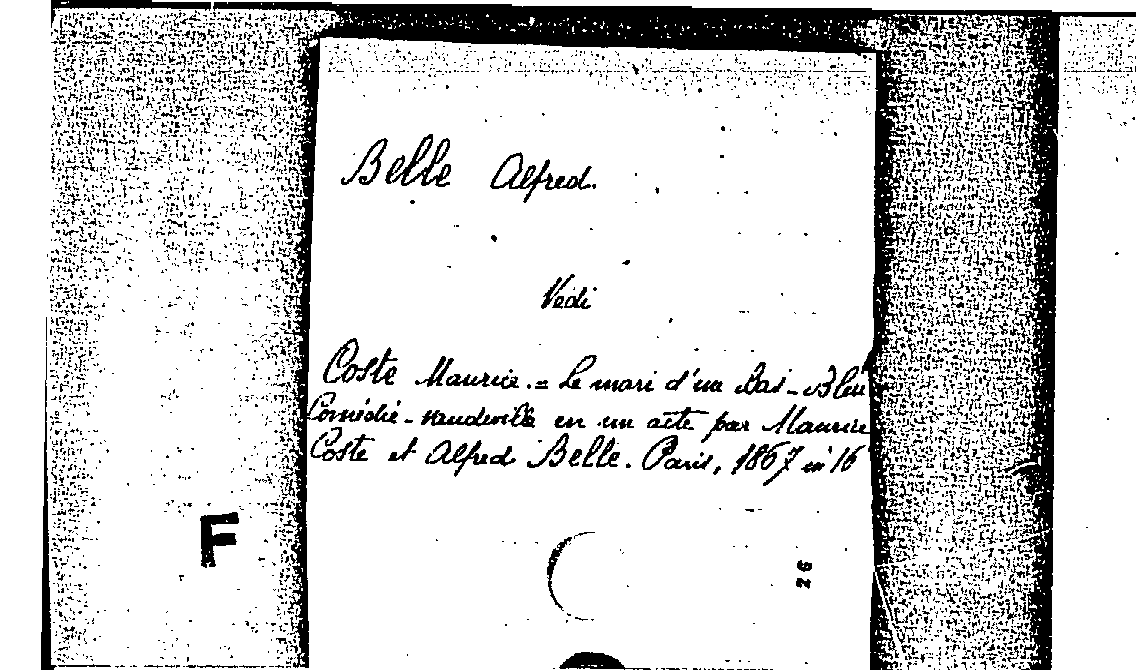 Belle Alfred.
Vedi
Coste Maurice. = Le mari d'un Bas-Bleu
Comédie-vaudeville en un acte par Maurice
Coste et Alfred Belle. Paris, 1867 in 16
F
26